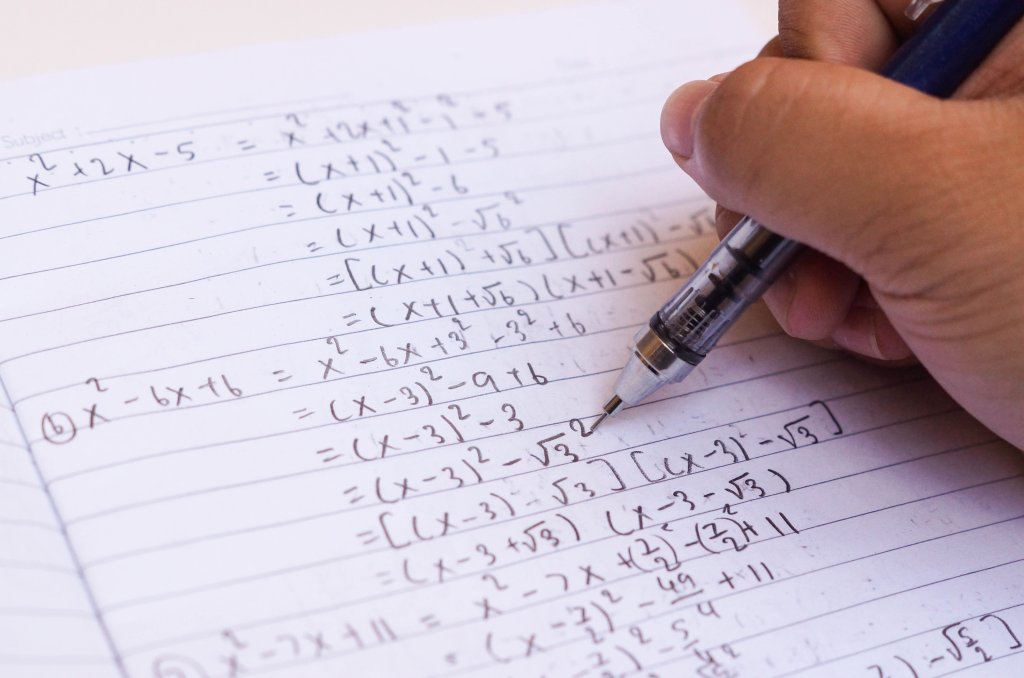 Subject :
x² + 2x - 5 = x² + 2x + 1² - 1² - 5
= (x+1)² - 1 - 5
= (x+1)² - 6
= (x+1)² - √6²
= [(x+1) + √6] [(x+1) - √6
= (x+1+√6) (x+1-√6)
ⓑ x² - 6x + 6 = x² - 6x + 3² - 3² + 6
= (x-3)² - 9 + 6
= (x-3)² - 3
= (x-3)² - √3²
= [(x-3) - √3] [(x-3) - √3]
= (x-3+√3) (x-3-√3)
x² - 7x + 11 = x² - 7x + (7/2)² - (7/2)² + 11
= (x - 7/2)² - 49/4 + 11
7/2)² - 5/4
) - √5/2]